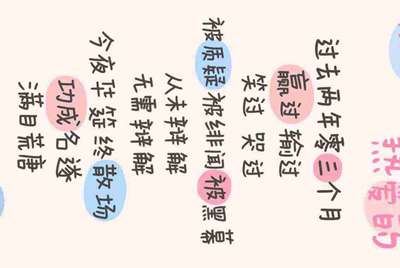 的
过去两年零三个月
赢过 输过
笑过 哭过
被质疑被绯闻被黑幕
从未辩解
无需辩解
今夜华筵终散场
功成名遂
满目荒唐